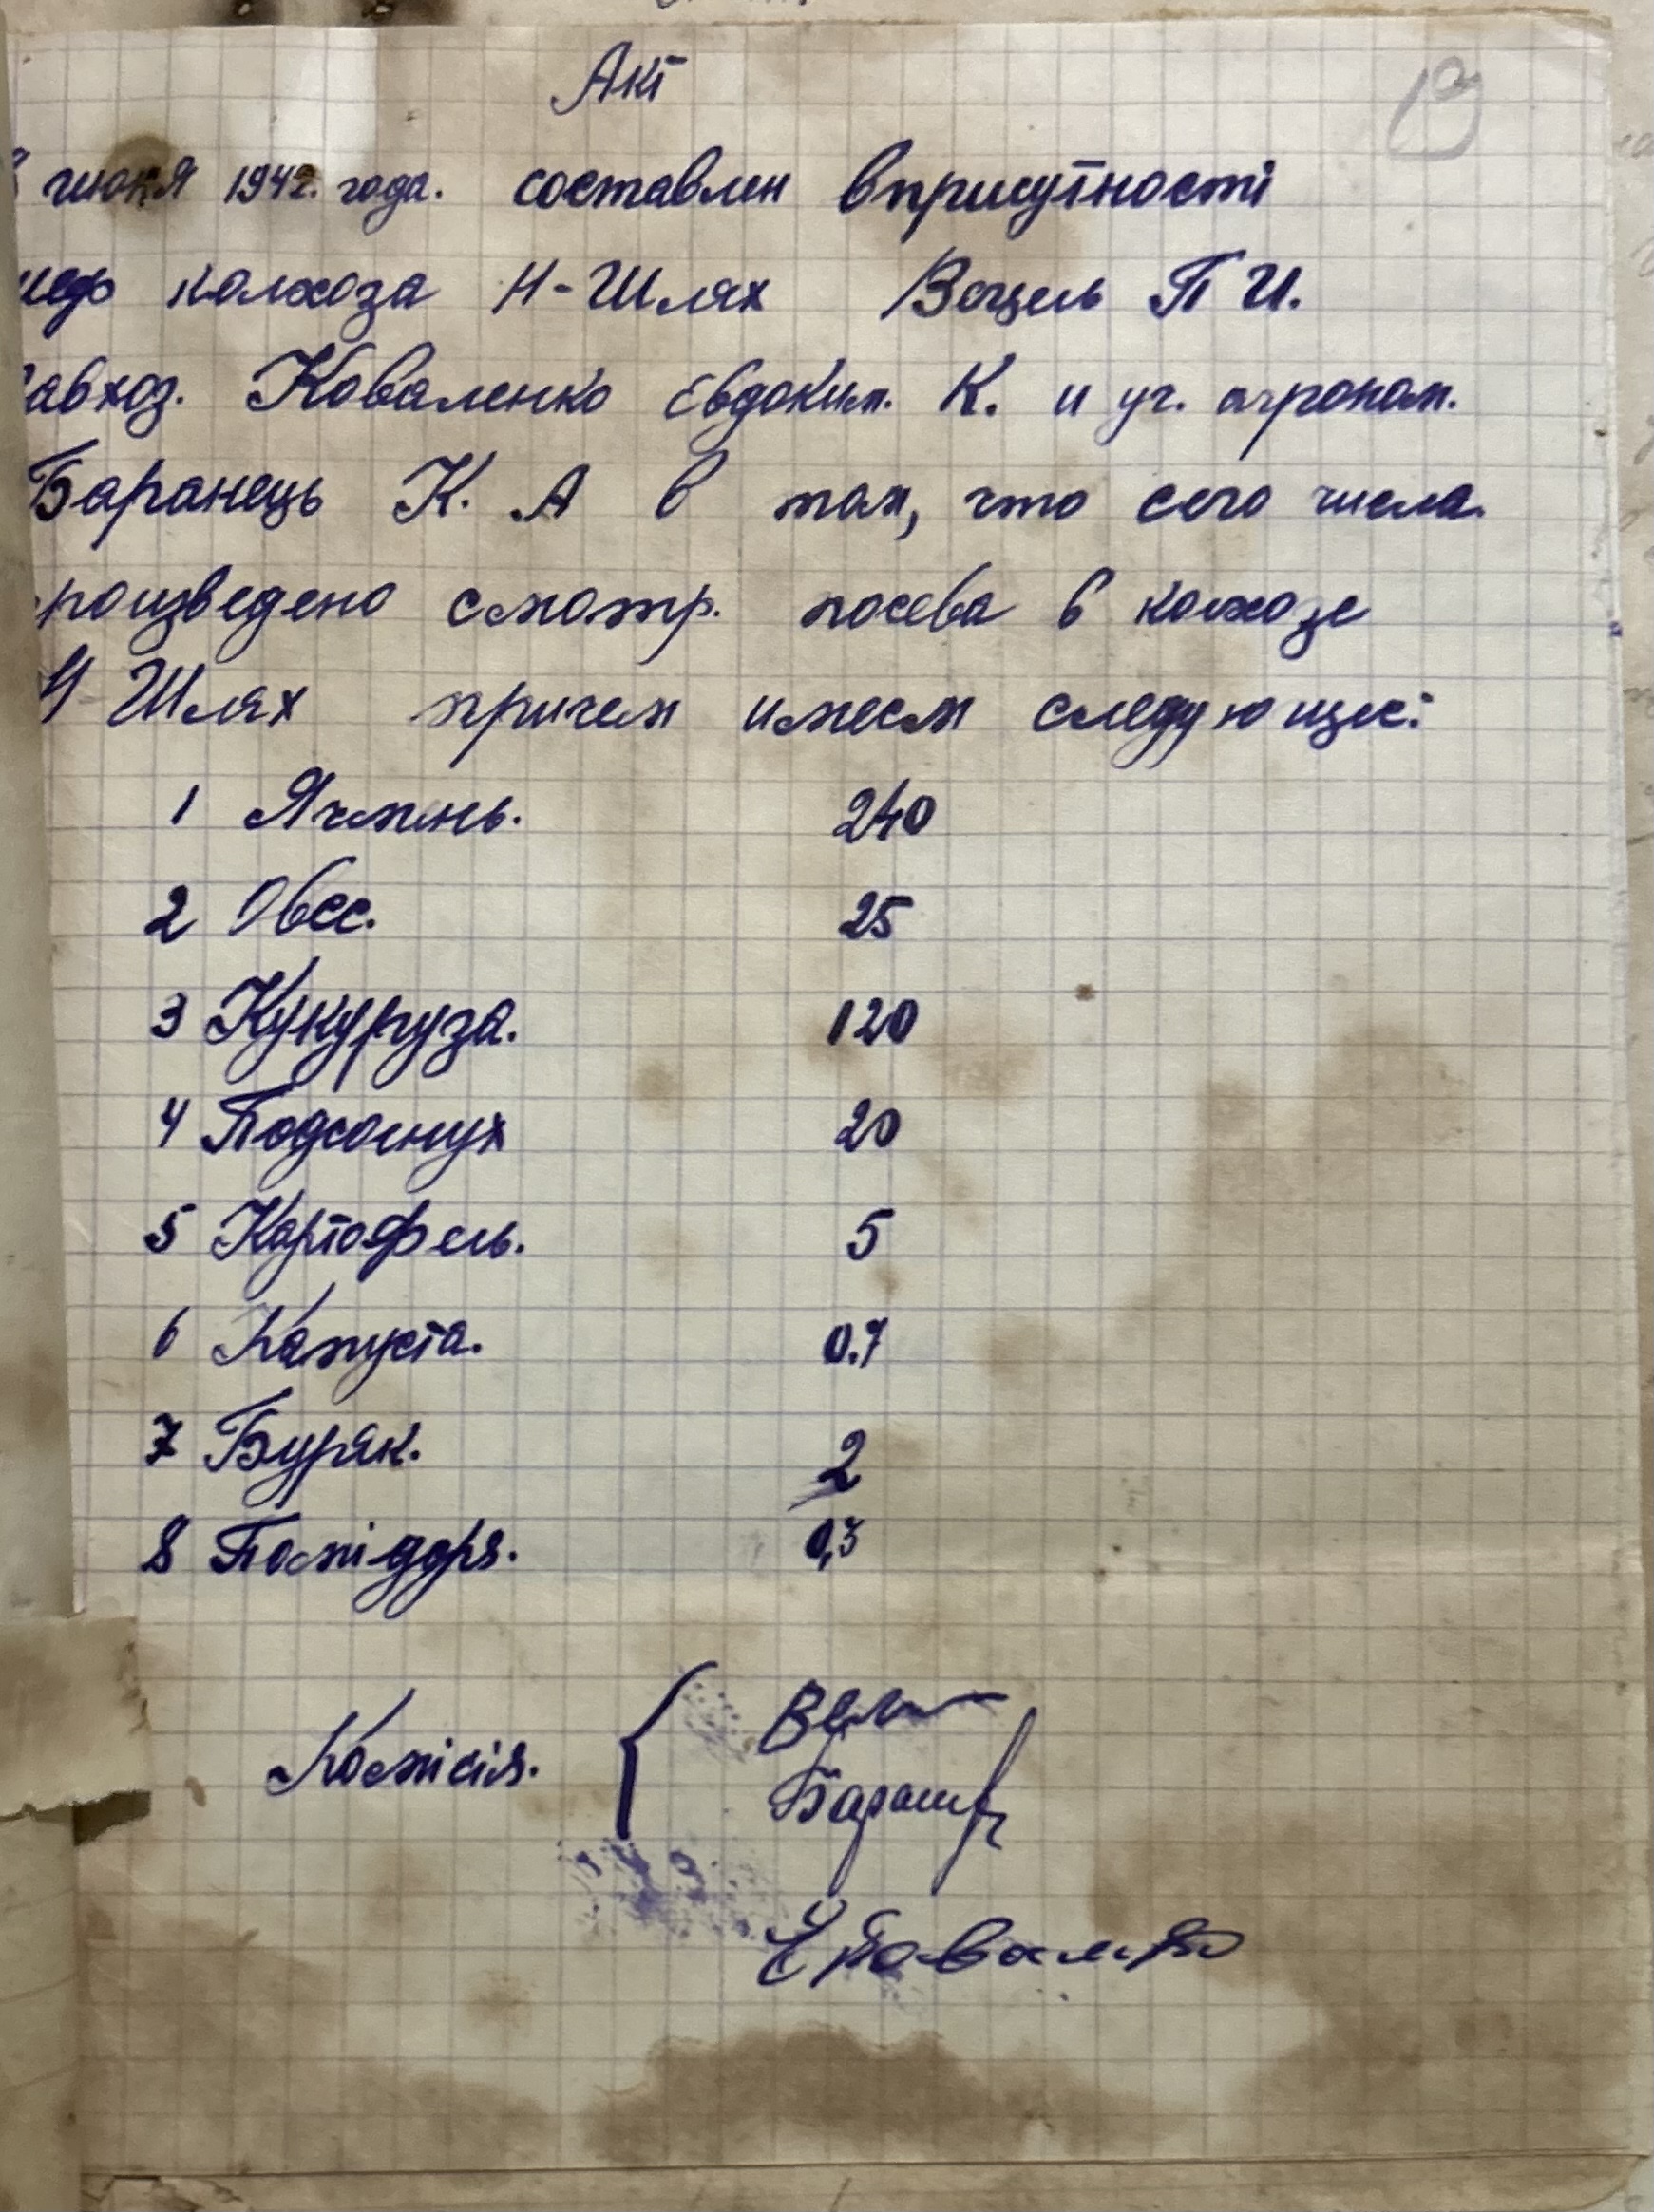 Акт
19
июня 1942. года. составлен вприсутності
колхоза Н-Шлях Воцель П И.
Завхоз. Коваленко Евдоким. К. и уч. агроном.
Баранець К. А в том, что сего числа.
произведено смотр. посева в колхозе
Н Шлях причем имеем следующее:
1 Ячмень. 240
2 Овес. 25
3 Кукуруза. 120
4 Подсолнух 20
5 Картофель. 5
6 Капуста. 0.7
7 Буряк. 2
8 Помідоря. 0,3
Комісія.
Баранец
Е Коваленко